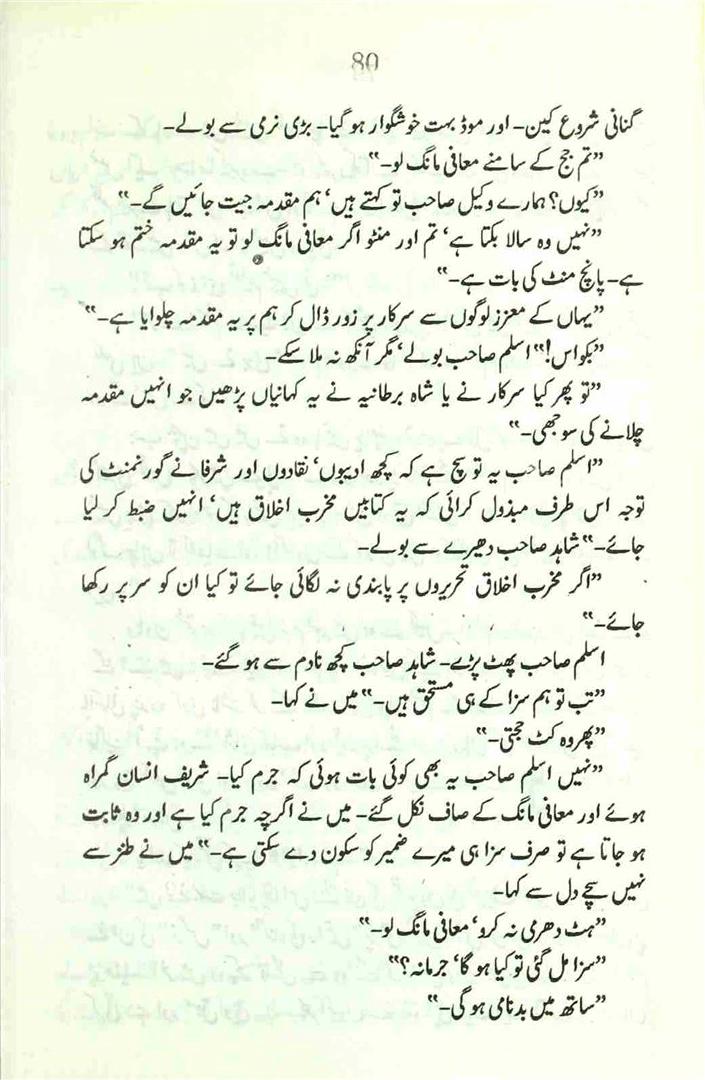 80
گنانی شروع کین۔ اور موڈ بہت خوشگوار ہو گیا۔ بڑی نرمی سے بولے۔
”تم جج کے سامنے معافی مانگ لو۔“
”کیوں؟ ہمارے وکیل صاحب تو کہتے ہیں‘ ہم مقدمہ جیت جائیں گے۔“
”نہیں وہ سالا بکتا ہے‘ تم اور منٹو اگر معافی مانگ لو تو یہ مقدمہ ختم ہو سکتا
ہے۔ پانچ منٹ کی بات ہے۔“
”یہاں کے معزز لوگوں سے سرکار پر زور ڈال کر ہم پر یہ مقدمہ چلوایا ہے۔“
”بکواس!“ اسلم صاحب بولے‘ مگر آنکھ نہ ملا سکے۔
”تو پھر کیا سرکار نے یا شاہ برطانیہ نے یہ کہانیاں پڑھیں جو انہیں مقدمہ
چلانے کی سوجھی۔“
”اسلم صاحب یہ تو سچ ہے کہ کچھ ادیبوں‘ نقادوں اور شرفا نے گورنمنٹ کی
توجہ اس طرف مبذول کرائی کہ یہ کتابیں مخرب اخلاق ہیں‘ انہیں ضبط کر لیا
جائے۔“ شاہد صاحب دھیرے سے بولے۔
”اگر مخرب اخلاق تحریروں پر پابندی نہ لگائی جائے تو کیا ان کو سر پر رکھا
جائے۔“
اسلم صاحب پھٹ پڑے۔ شاہد صاحب کچھ نادم سے ہو گئے۔
”تب تو ہم سزا کے ہی مستحق ہیں۔“ میں نے کہا۔
”پھر وہ کٹ حجتی۔“
”نہیں اسلم صاحب یہ بھی کوئی بات ہوئی کہ جرم کیا۔ شریف انسان گمراہ
ہوئے اور معافی مانگ کے صاف نکل گئے۔ میں نے اگرچہ جرم کیا ہے اور وہ ثابت
ہو جاتا ہے تو صرف سزا ہی میرے ضمیر کو سکون دے سکتی ہے۔“ میں نے طنز سے
نہیں سچے دل سے کہا۔
”ہٹ دھری نہ کرو‘ معافی مانگ لو۔“
”سزا مل گئی تو کیا ہو گا‘ جرمانہ؟“
”ساتھ میں بدنامی ہو گی۔“